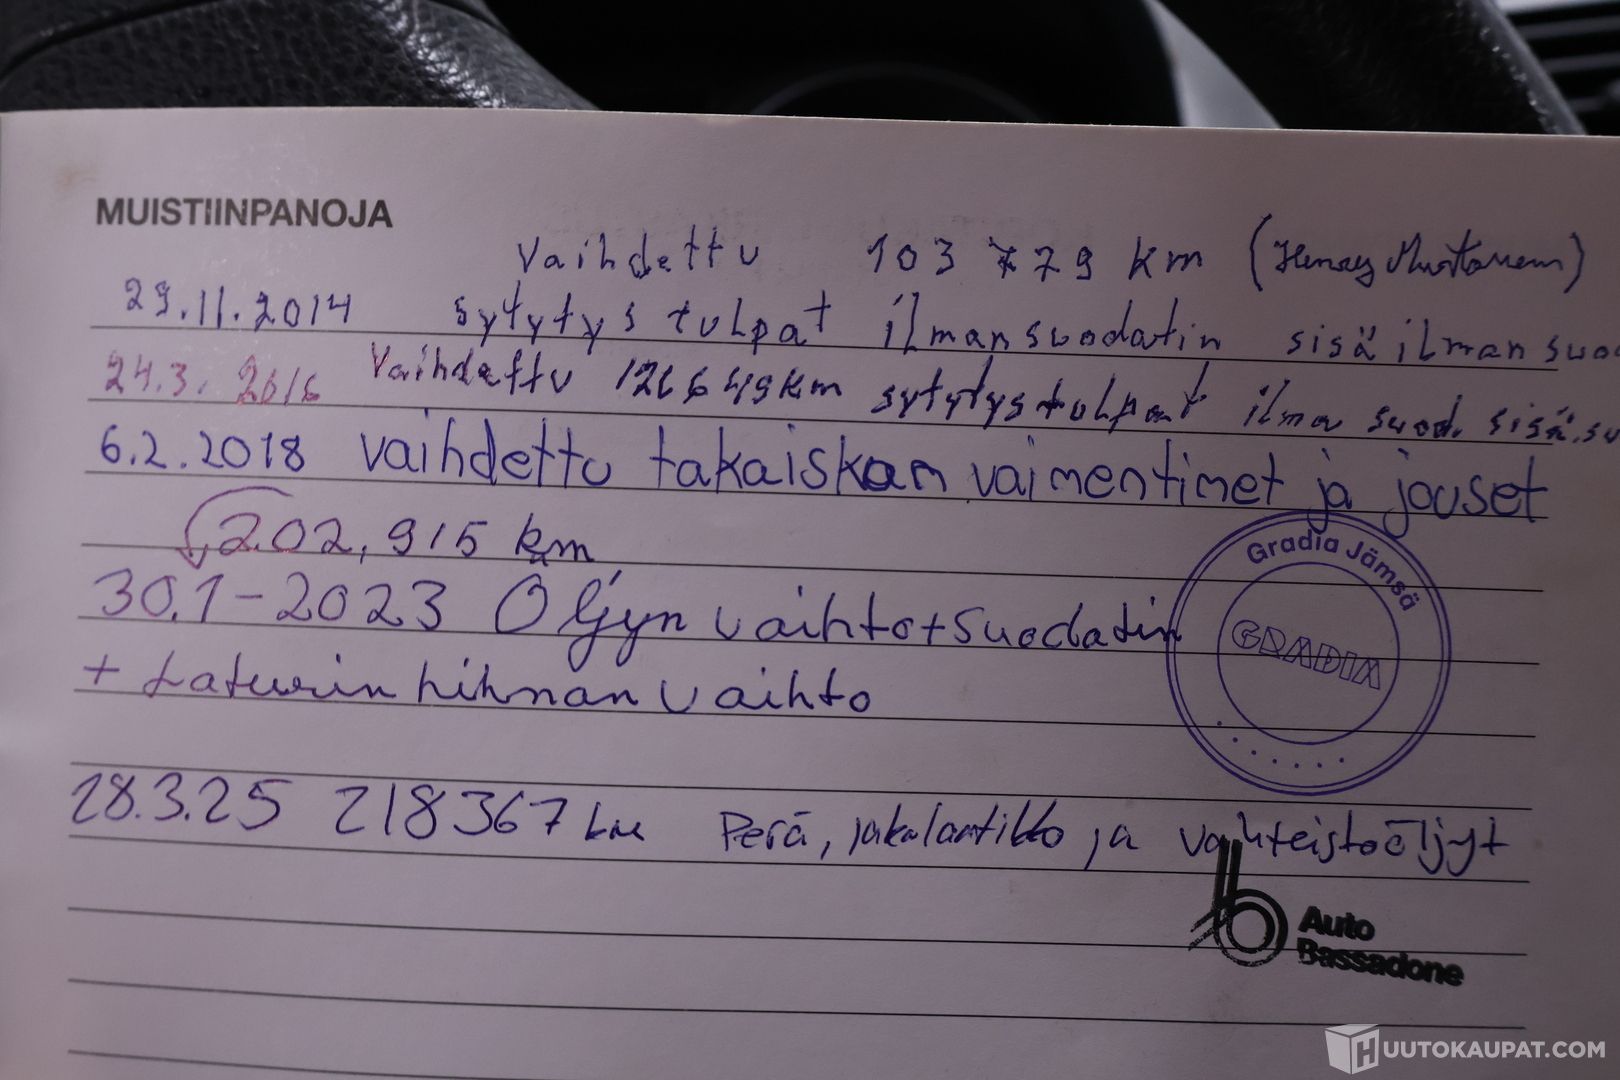 MUISTIINPANOJA
Vaihdettu 103 779 km (Henry
29.11.2014 sytytystulpat ilmansuodatin sisäilmansuo
24.3.2016 Vaihdettu 126649km sytytystulpat ilma suod. sisä.su
6.2.2018 vaihdettu takaiskan vaimentimet ja jouset
202,915 km
30.1-2023 Öljyn vaihto+suodatin
+ Laturin hihnan vaihto
Gradia Jämsä
GRADIA
28.3.25 218367 km Perä, jakolaatikko ja vaihteistoöljyt
Auto
Bassadone
HUUTOKAUPAT.COM